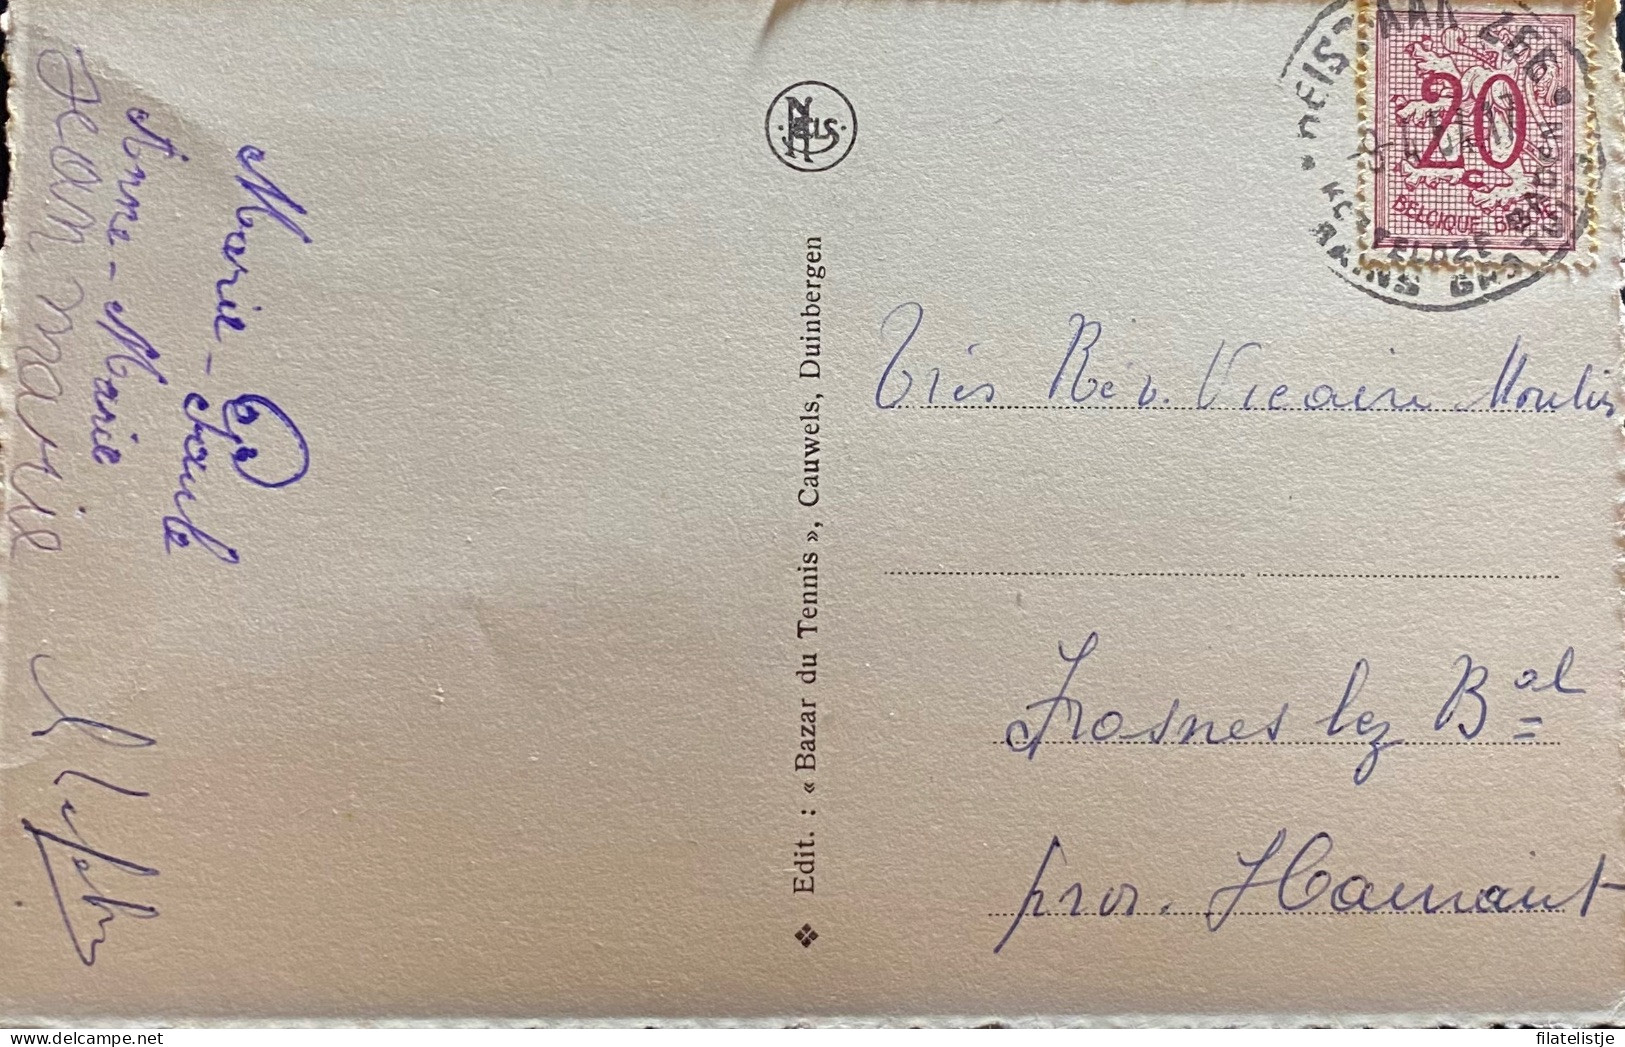 Marie-
Paule
Anne-Marie
Jean marie
NELS
Edit. : « Bazar du Tennis », Cauwels, Duinbergen
20
c
BELGIQUE BELGIE
Très Rév. Vicaire Moulin
Frasnes lez Bal
prov. Hainaut
filatelistje